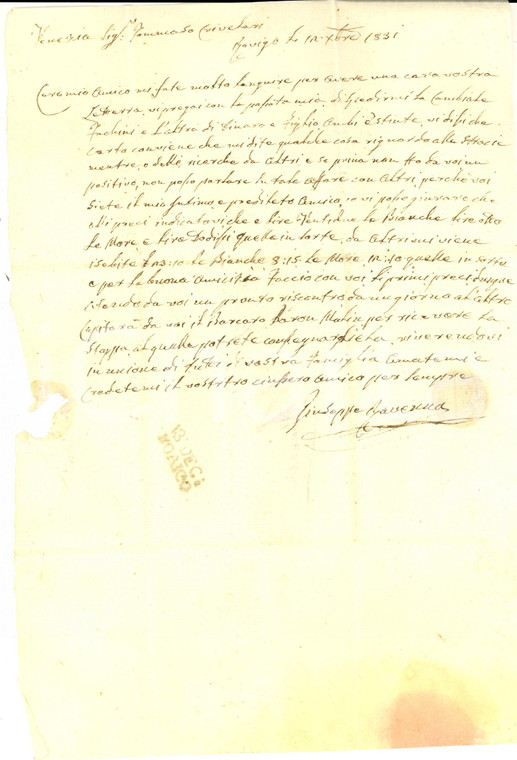 Venezia Sig.r Tommaso Crivelari
Rovigo li 12 Xbre 1831
Caro mio Amico mi fate molto languire per avere una cara vostra
Letterra, vi pregai con la passata mia, di spedirmi la Cambiale
Fachini e l'altra di e Figlio Anchi Estinte, vi dissi che
certo conviene che mi dite qualche cosa riguardo alle
mentre, o delle ricerche da Altri e se prima non ho da voi un
positivo, non posso parlare di tale Affare con Altri, perche voi
Siete il mio intimo e prediletto Amico, io vi posso giurare che
alli preci indicatovi che e lire Ventidue le Bianche lire otto
le More e lire Dodissi quelle in sorte, da Altri mi viene
esebite 23:10 le Bianche 8:15 le More 12:10 quelle in sorte
e per la buona Amicizia Faccio con voi li primi preci dunque
atendo da voi un pronto riscontro da un giorno al Altro
Capitarà da voi il Barcaro Maron per ricevere la
Stoppa, al qualle potrete consegnargliela, riverendovi
in unione di tutti di vostra Famiglia Amatemi e
Credetemi il vostrtro cinssero Amico per sempre
Giuseppe Ravenna
13 DEC.
ROVIGO